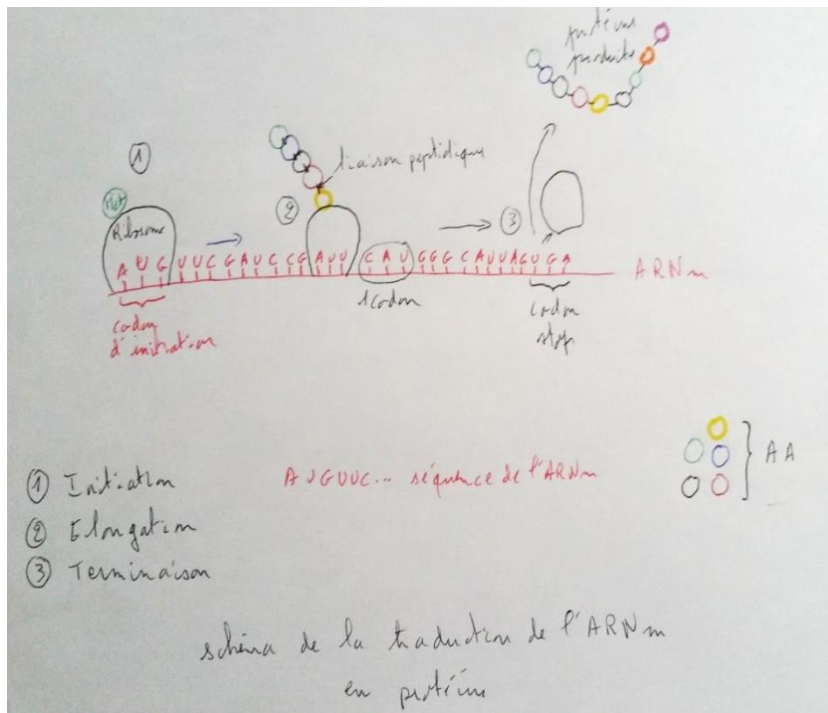 protéine
produite
①
liaison peptidique
②
③
Met
Ribosome
A U G U U C G A U C C G A U U C A U G G G C A U U A G U G A
ARNm
1 codon
codon
d'initiation
codon
stop
① Initiation
② Elongation
③ Terminaison
AUGUUC... séquence de l'ARNm
AA
schéma de la traduction de l'ARNm
en protéine